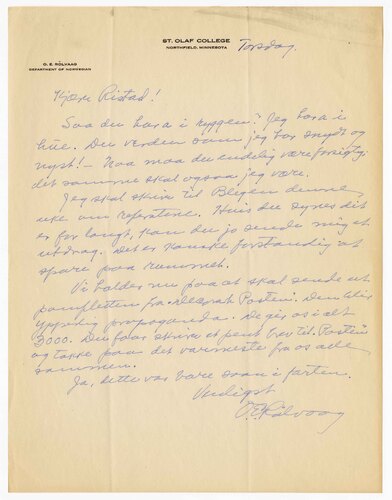 ST. OLAF COLLEGE
NORTHFIELD, MINNESOTA
Torsdag.
O. E. RÖLVAAG
DEPARTMENT OF NORWEGIAN
Kjære Ristad!
Saa du hosta i ryggen? Jeg hosta i
hüe. Du verden som jeg har snydt og
nyst! — Naa maa du endelig være forsigtig;
det samme skal ogsaa jeg være.
Jeg skal skrive til Blegen denne
uke om referatene. Hvis du synes dit
er for langt, kan du jo sende mig et
utdrag. Det er kanske forstandig at
spare paa rummet.
Vi holder nu paa at skal sende ut
pamfletten fra Posten. Den blir
yppedig propaganda. De gir os i alt
3000. Du faar skrive et pent brev til Posten
og takke paa det varmeste fra os alle
sammen.
Ja, dette var bare saan i farten.
Venligst
O E Rölvaag